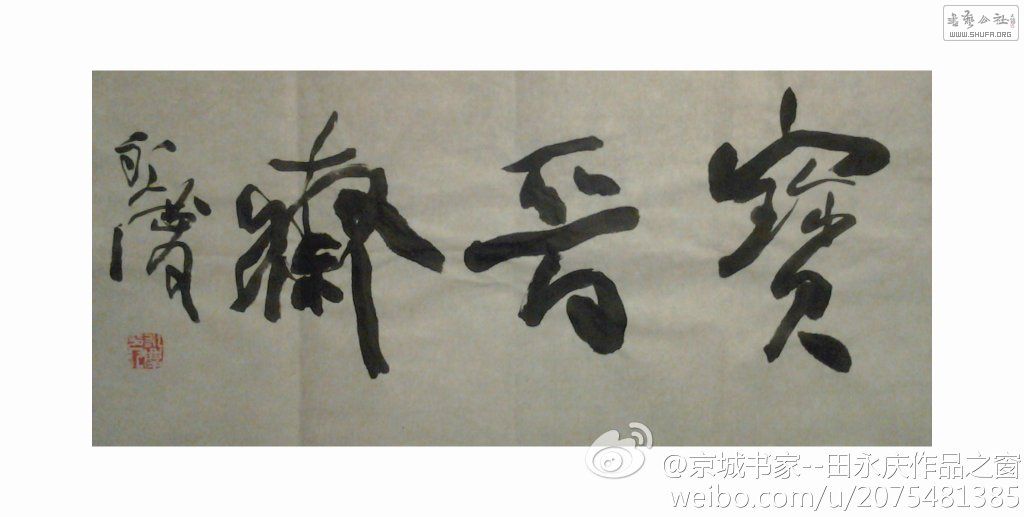 書藝公社
WWW.SHUFA.ORG
寶晉齋
永慶
@京城书家--田永庆作品之窗
weibo.com/u/2075481385